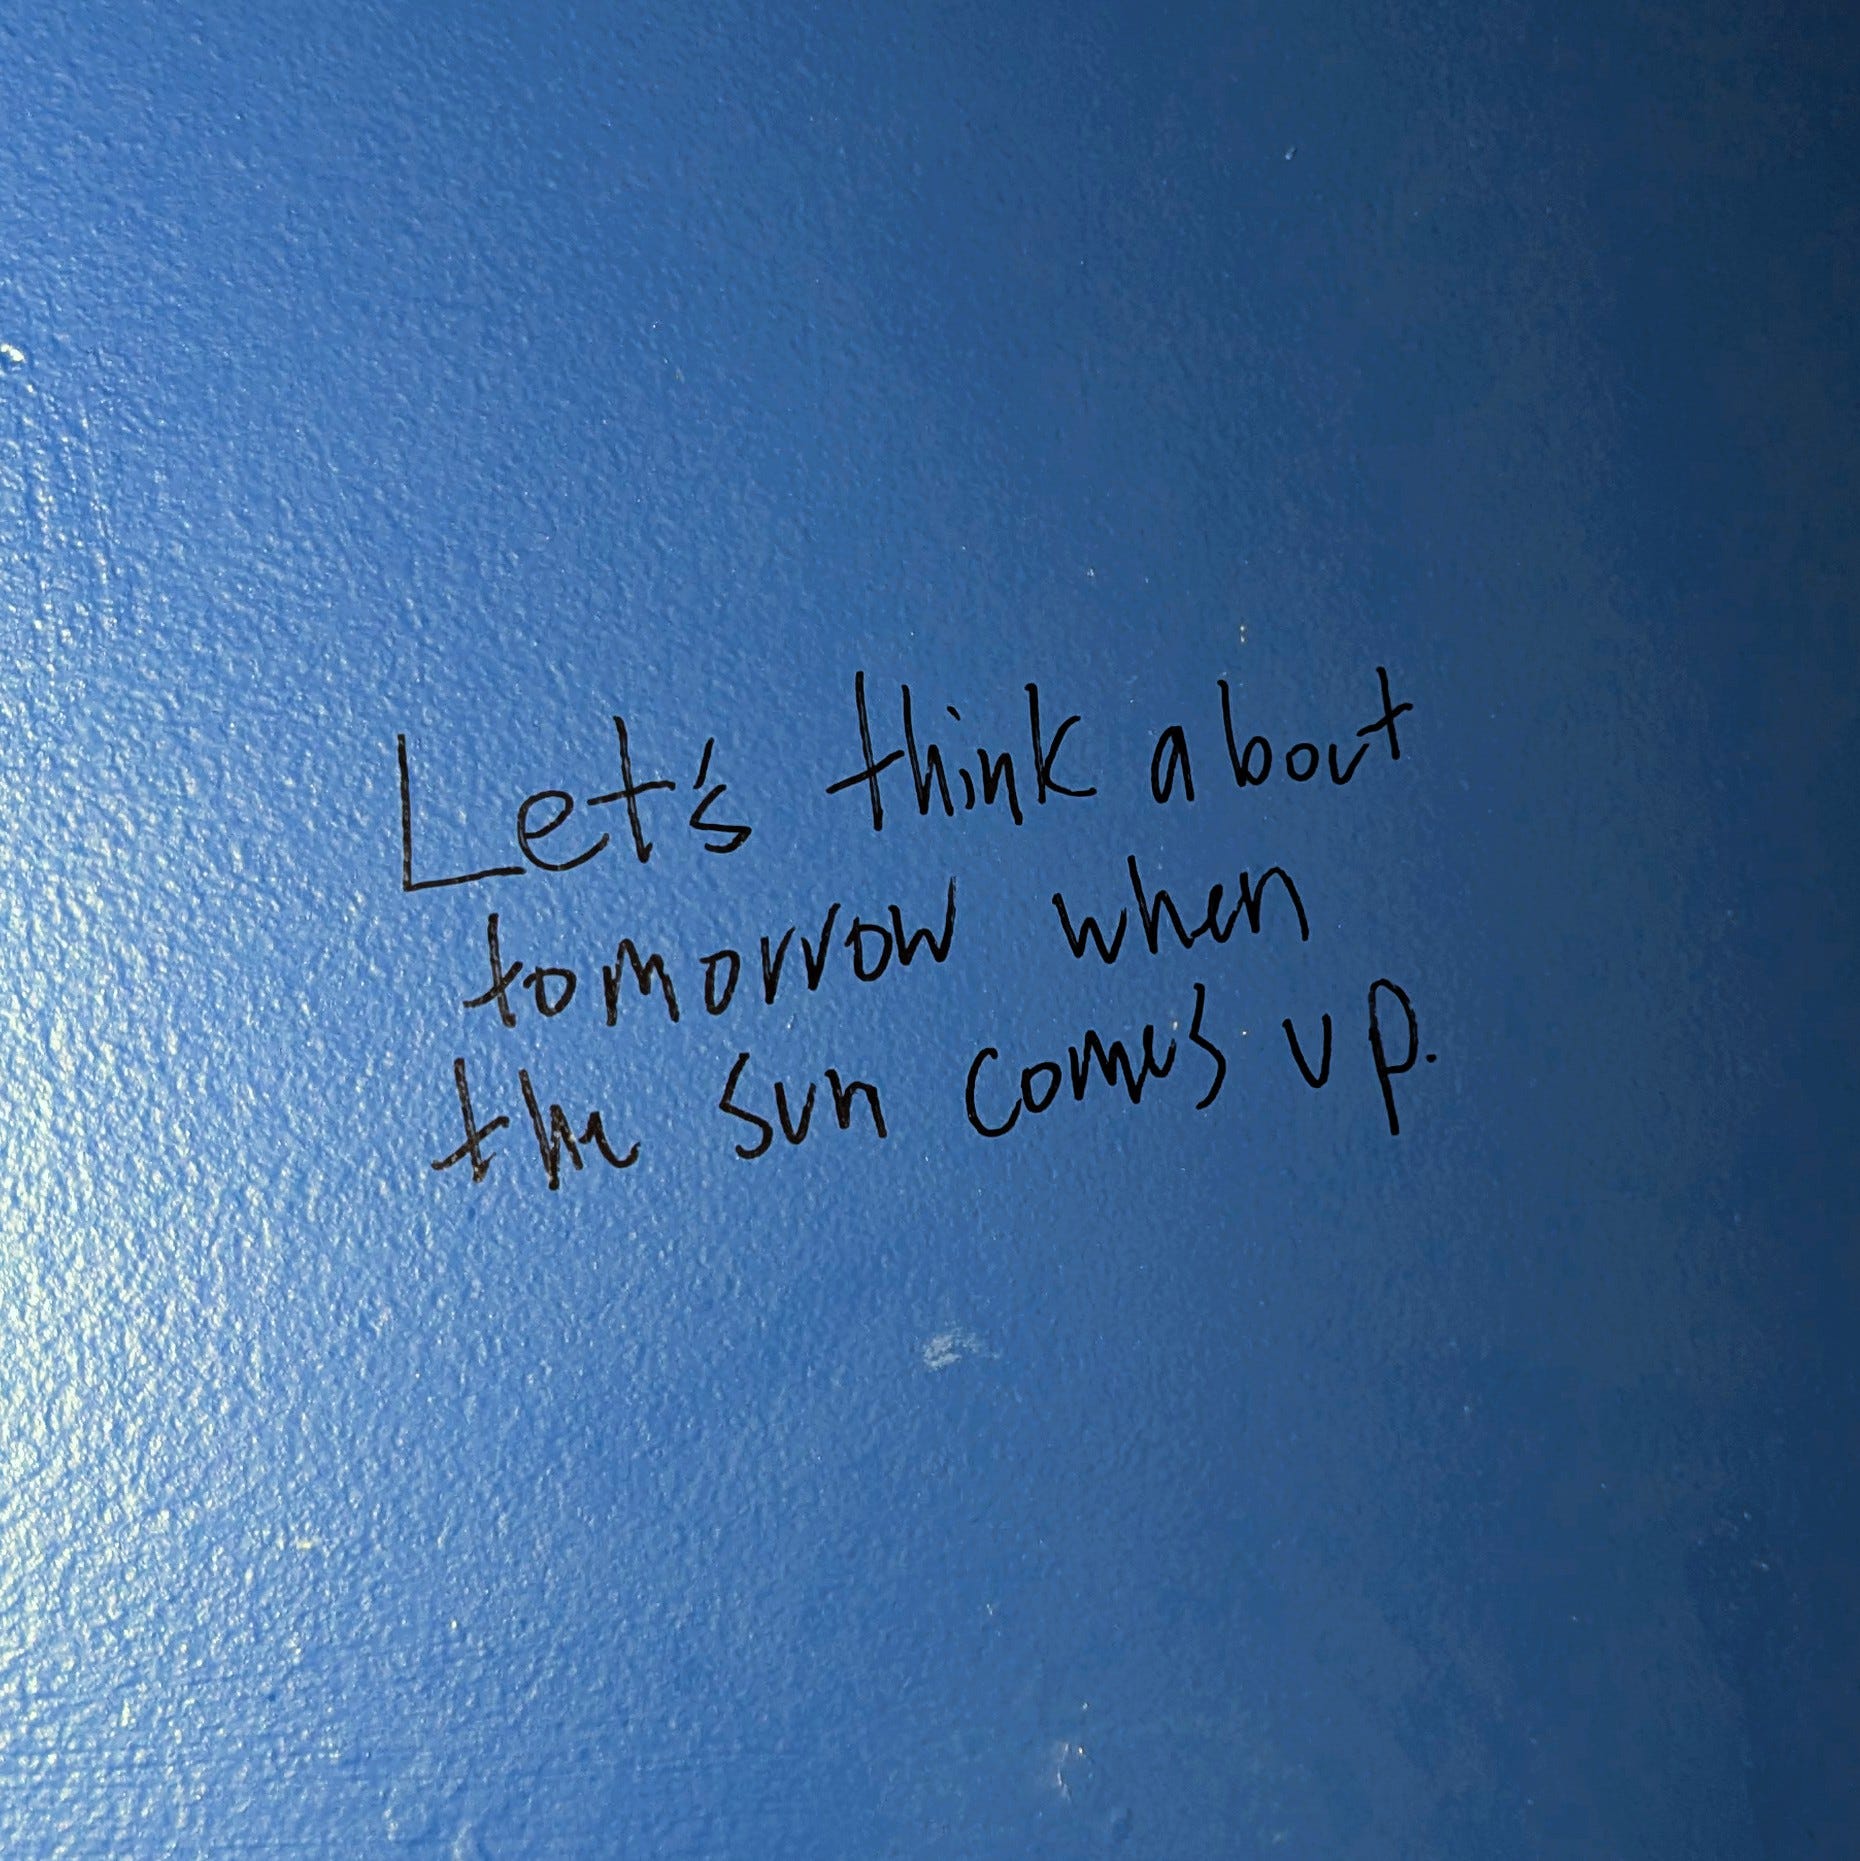 Let's think about
tomorrow when
the sun comes up.